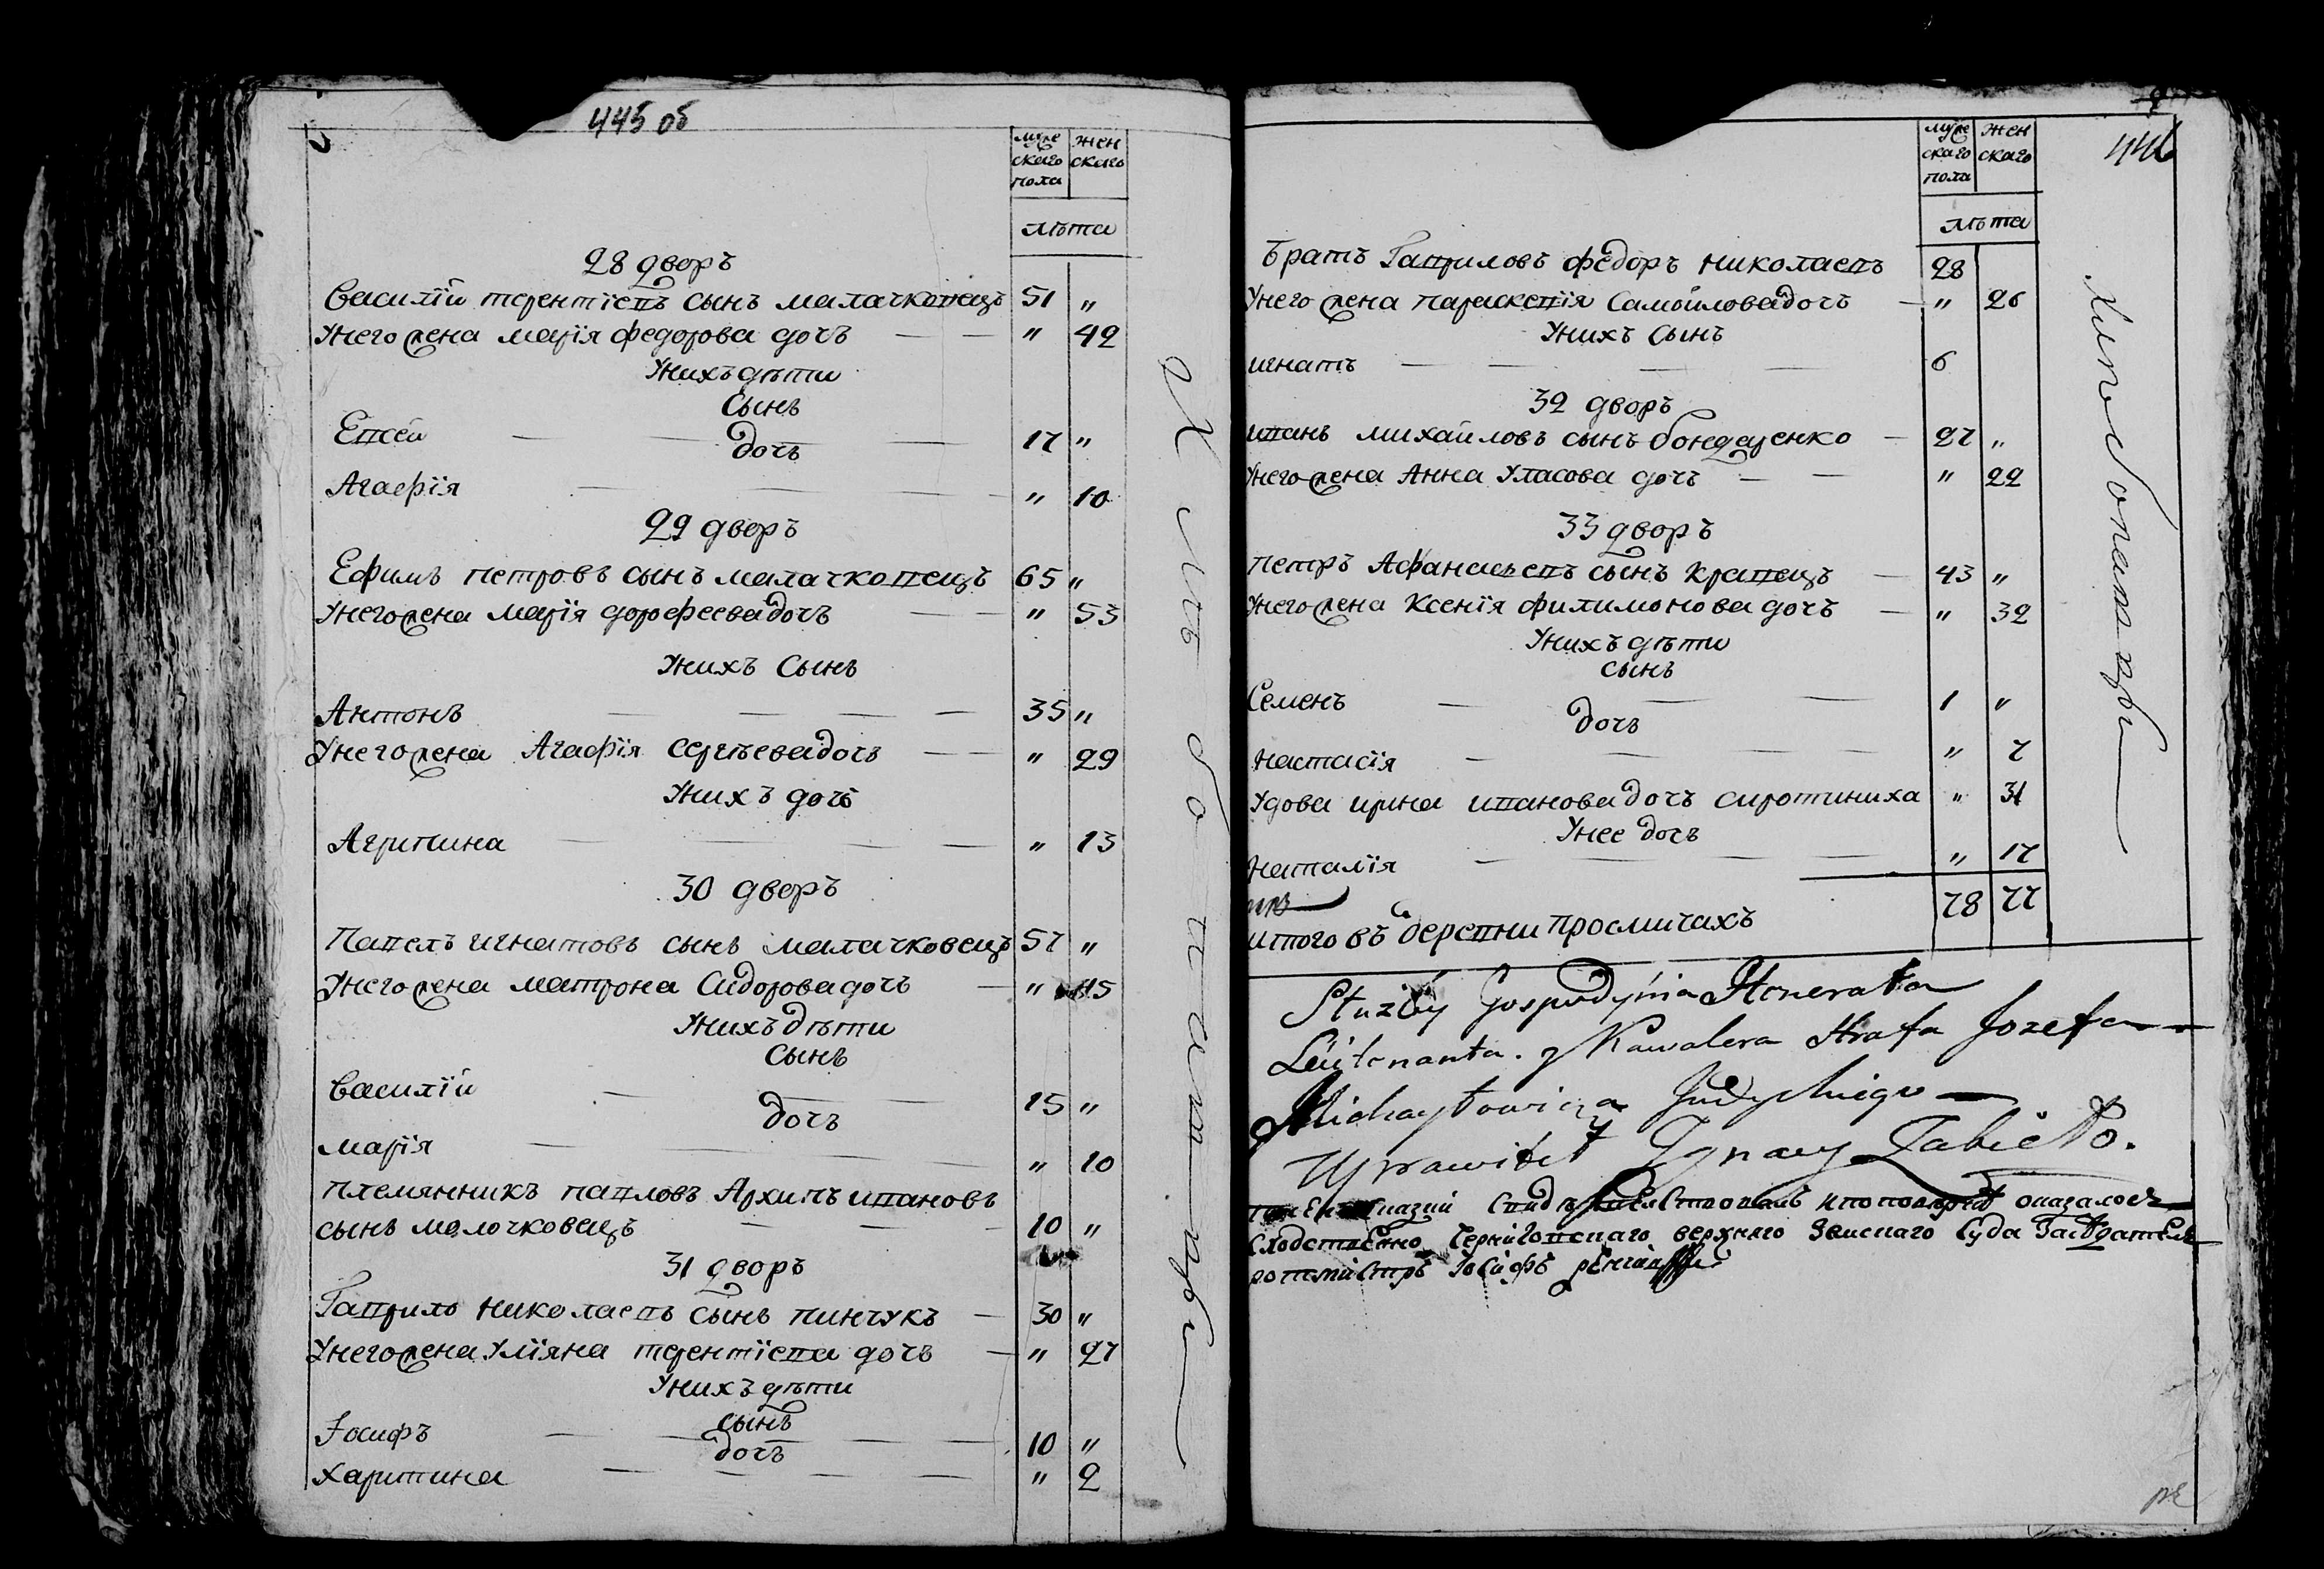 445 об
муже
скаго
пола
жен
скаго
лѣта
28 дворъ
Василiй терентiевъ сынъ малачковецъ 51 "
унего жена марiя федорова дочъ " 42
унихъ дѣти
сынъ
Евсей 17 "
дочъ
Агафiя " 10
29 дворъ
Ефимъ петровъ сынъ малачковецъ 65 "
унего жена марiя дорофеева дочъ " 53
унихъ сынъ
Антонъ 35 "
унего жена Агафiя сергѣева дочъ " 29
унихъ дочъ
Агрипина " 13
30 дворъ
Павелъ игнатовъ сынъ малачковецъ 57 "
унего жена матрона Сидорова дочъ " 45
унихъ дѣти
сынъ
василiй 15 "
дочъ
марiя " 10
племянникъ павловъ Архипъ ивановъ
сынъ малочковецъ 10 "
31 дворъ
Гаврило николаевъ сынъ пинчукъ 30 "
унего жена улiяна терентiева дочъ " 27
унихъ дѣти
сынъ
Iосифъ 10 "
дочъ
харитина " 2
446
муже
скаго
пола
жен
скаго
лѣта
братъ Гавриловъ федоръ николаевъ 28
унего жена параскевiя Самойлова дочъ " 26
унихъ сынъ
игнатъ 6
32 дворъ
иванъ михайловъ сынъ бондаренко 27 "
унего жена Анна уласова дочъ " 22
33 дворъ
петръ Афанасьевъ сынъ кравецъ 43 "
унего жена ксенiя филимонова дочъ " 32
унихъ дѣти
сынъ
Семенъ 1 "
дочъ
настасiя " 7
удова ирина иванова дочъ сиротиниха " 31
унее дочъ
наталiя " 17
итого въ деревни просмичахъ 78 77
Służby Gospodynia Honerata
Leütenanta. y Kawalera Hrafa Jozefa
Michayłowicza Judyckiego
Uprawitel Ignacy
оказалосъ
Черниговскаго верхняго Земскаго Суда Засѣдатель
ротмистръ Iосифъ